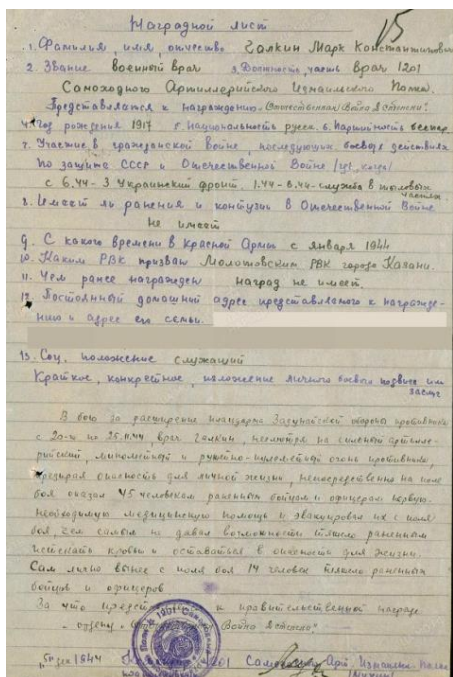 15
Наградной лист
1. Фамилия, имя, отчество Галкин Марк Константинович
2. Звание военный врач 3. Должность, часть врач 1201
Самоходного Артиллерийского Измаильского Полка.
Представляется к награждению Отечественная Война 2 степени.
4. Год рождения 1917 5. Национальность русск. 6. Партийность беспар.
7. Участие в гражданской войне, последующих боевых действиях
по защите СССР и Отечественной Войне /где, когда/
с 6.44 - 3 Украинский фронт. 1.44 - 6.44 - служба в тыловых
частях.
8. Имеет ли ранения и контузии в Отечественной Войне
не имеет
9. С какого времени в Красной Армии с января 1944
10. Каким РВК призван Молотовским РВК города Казани.
11. Чем ранее награжден наград не имеет
12. Постоянный домашний адрес представляемого к награжде-
нию и адрес его семьи.
13. Соц. положение служащий
Краткое, конкретное, изложение личного боевого подвига или
заслуг
В бою за расширение плацдарма Задунайской обороны противника
с 20-го по 25.11.44, врач Галкин, несмотря на сильный артилле-
рийский, минометный и ружейно-пулеметный огонь противника,
презирая опасность для личной жизни, непосредственно на поле
боя оказал 45 человекам раненым бойцам и офицерам первую
необходимую медицинскую помощь и эвакуировал их с поля
боя, чем самым не давал возможности тяжело раненым
истекать кровью и оставаться в опасности для жизни.
Сам лично вынес с поля боя 14 человек тяжело раненых
бойцов и офицеров
За что предст к правительственной награде
- ордену " Война 2 степени"
1944 1201 Самоход. Арт. Измаильск. Полка